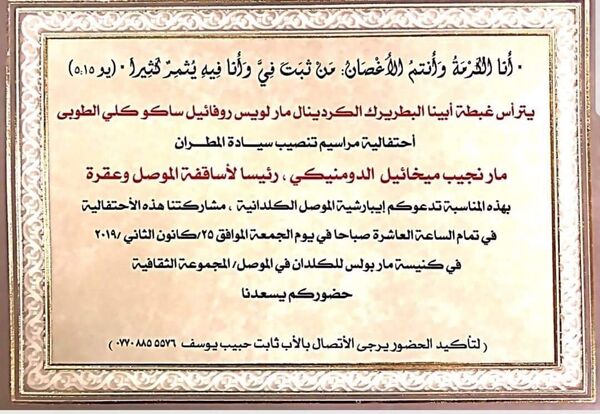 • أَنَا الْكَرْمَةُ وَأَنتمُ الْأَغْصَانُ: مَنْ ثَبَتَ فِيَّ وَأَنا فِيهِ يُثْمِرُ كَثِيراً • (يو ٥:١٥)
يترأس غبطة أبينا البطريرك الكردينال مار لويس روفائيل ساكو كلي الطوبى
أحتفالية مراسيم تنصيب سيادة المطران
مار نجيب ميخائيل الدومنيكي ، رئيسا لأساقفة الموصل وعقرة
بهذه المناسبة تدعوكم إيبارشية الموصل الكلدانية ، مشاركتنا هذه الأحتفالية
في تمام الساعة العاشرة صباحا في يوم الجمعة الموافق ٢٥/كانون الثاني /٢٠١٩
في كنيسة مار بولس للكلدان في الموصل/ المجموعة الثقافية
حضوركم يسعدنا
( لتأكيد الحضور يرجى الأتصال بالأب ثابت حبيب يوسف ٠٧٧٠٨٨٥٥٥٧٦ )